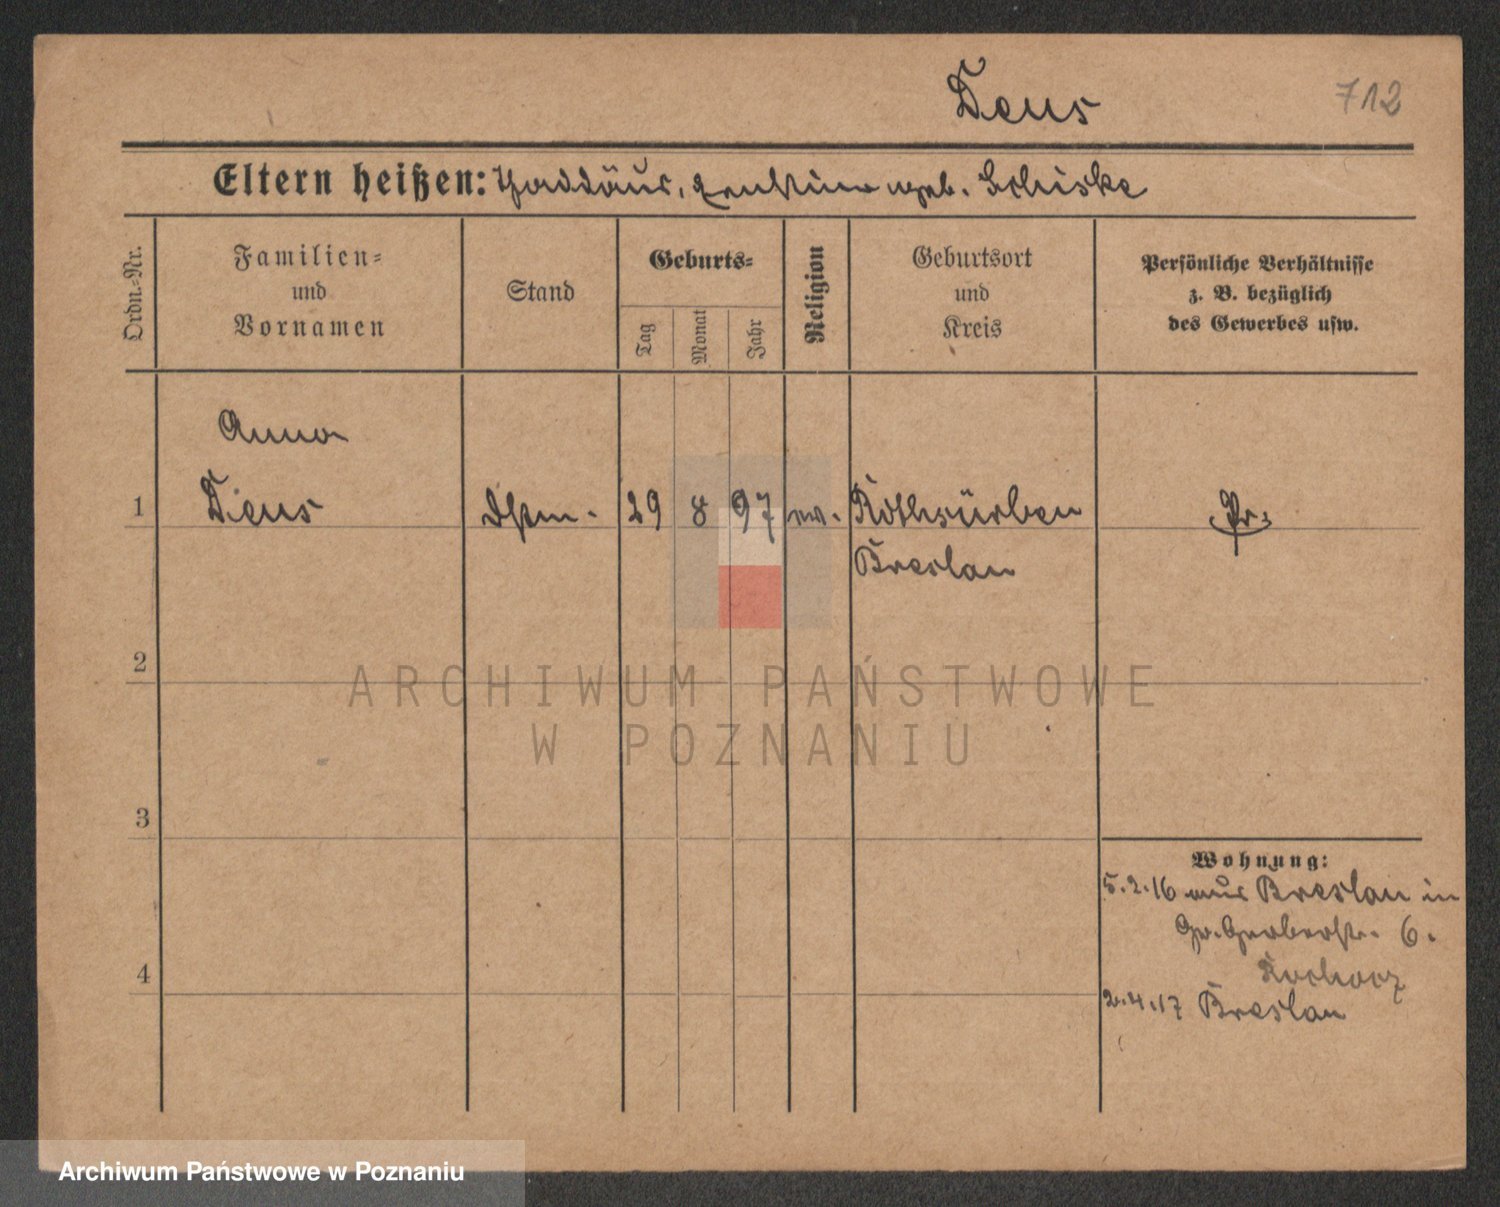 Deus
712
Eltern heißen: Thaddäus, geb. Schiske
Ordn.-Nr.
Familien-
und
Vornamen
Stand
Geburts-
Tag
Monat
Jahr
Religion
Geburtsort
und
Kreis
Persönliche Verhältnisse
z. B. bezüglich
des Gewerbes usw.
Anna
1 Deus 29 8 97 Rothsürben Pr.
Breslau
2
ARCHIWUM PAŃSTWOWE
W POZNANIU
3
Wohnung:
5.2.16 aus Breslau in
Gr. Gerberstr. 6.
4
2.4.17 Breslau
Archiwum Państwowe w Poznaniu